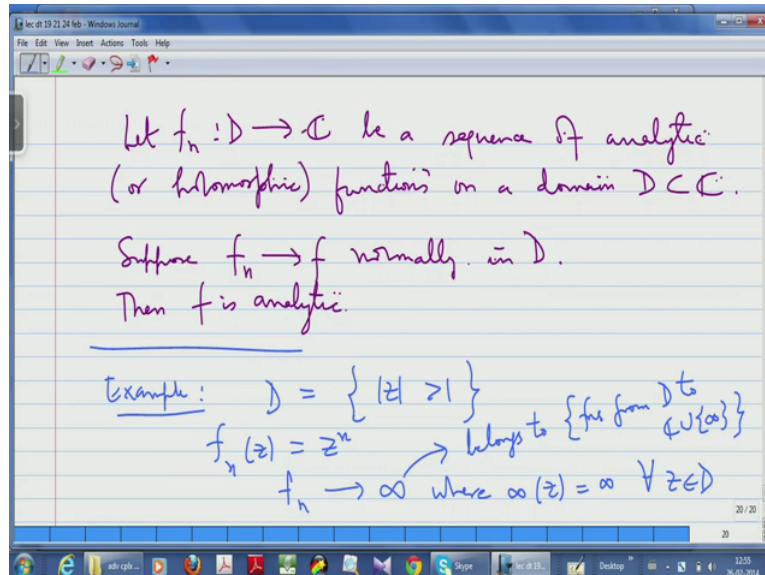 lec dt 19 21 24 feb - Windows Journal
File Edit View Insert Actions Tools Help
Let fₙ : D → ℂ be a sequence of analytic
(or holomorphic) functions on a domain D ⊂ ℂ.
Suppose fₙ → f normally in D.
Then f is analytic.
Example: D = { |z| > 1 }
fₙ(z) = zⁿ → belongs to { fns from D to ℂ ∪ {∞} }
fₙ → ∞ where ∞(z) = ∞ ∀ z ∈ D
20 / 20
20
adv cplx... Skype lec dt 19... Desktop 12:55
26-02-2014